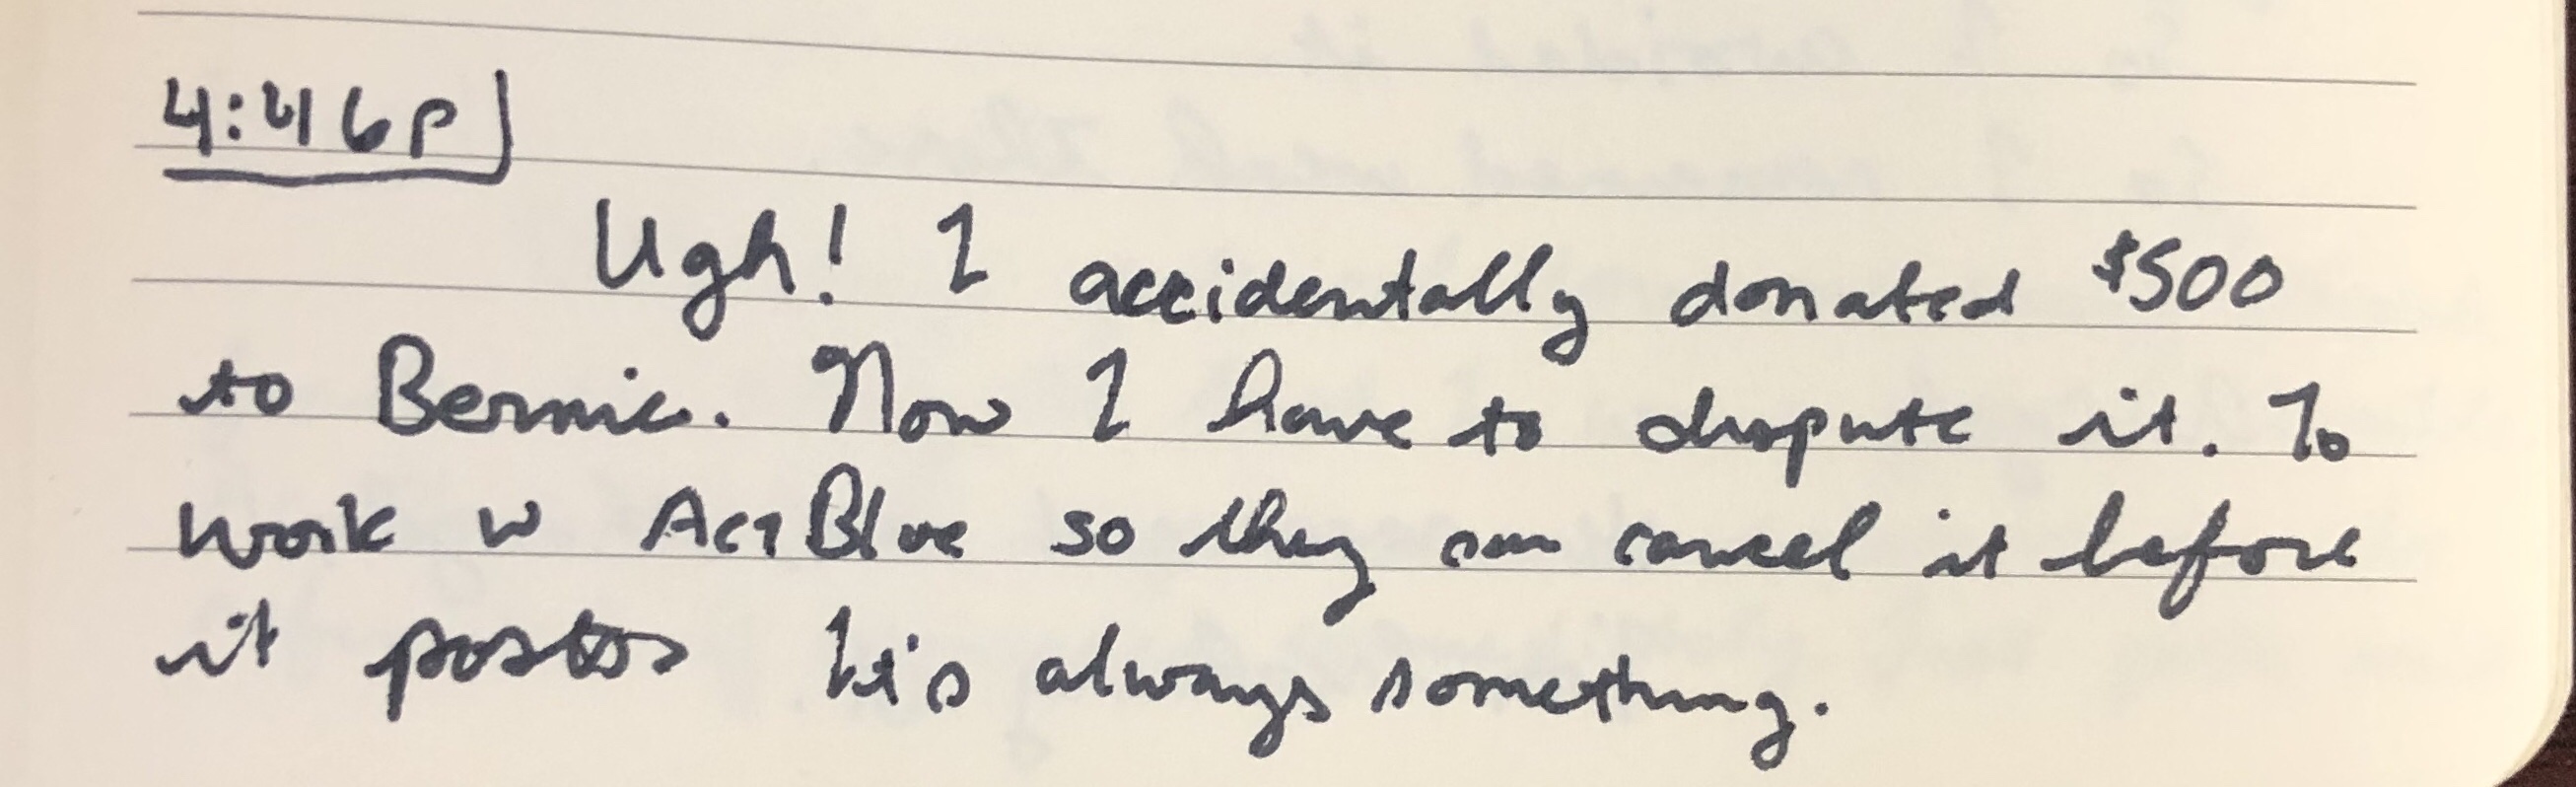 4:46p
Ugh! I accidentally donated $500
to Bernie. Now I have to dispute it. To
work w ActBlue so they can cancel it before
it posts It's always something.